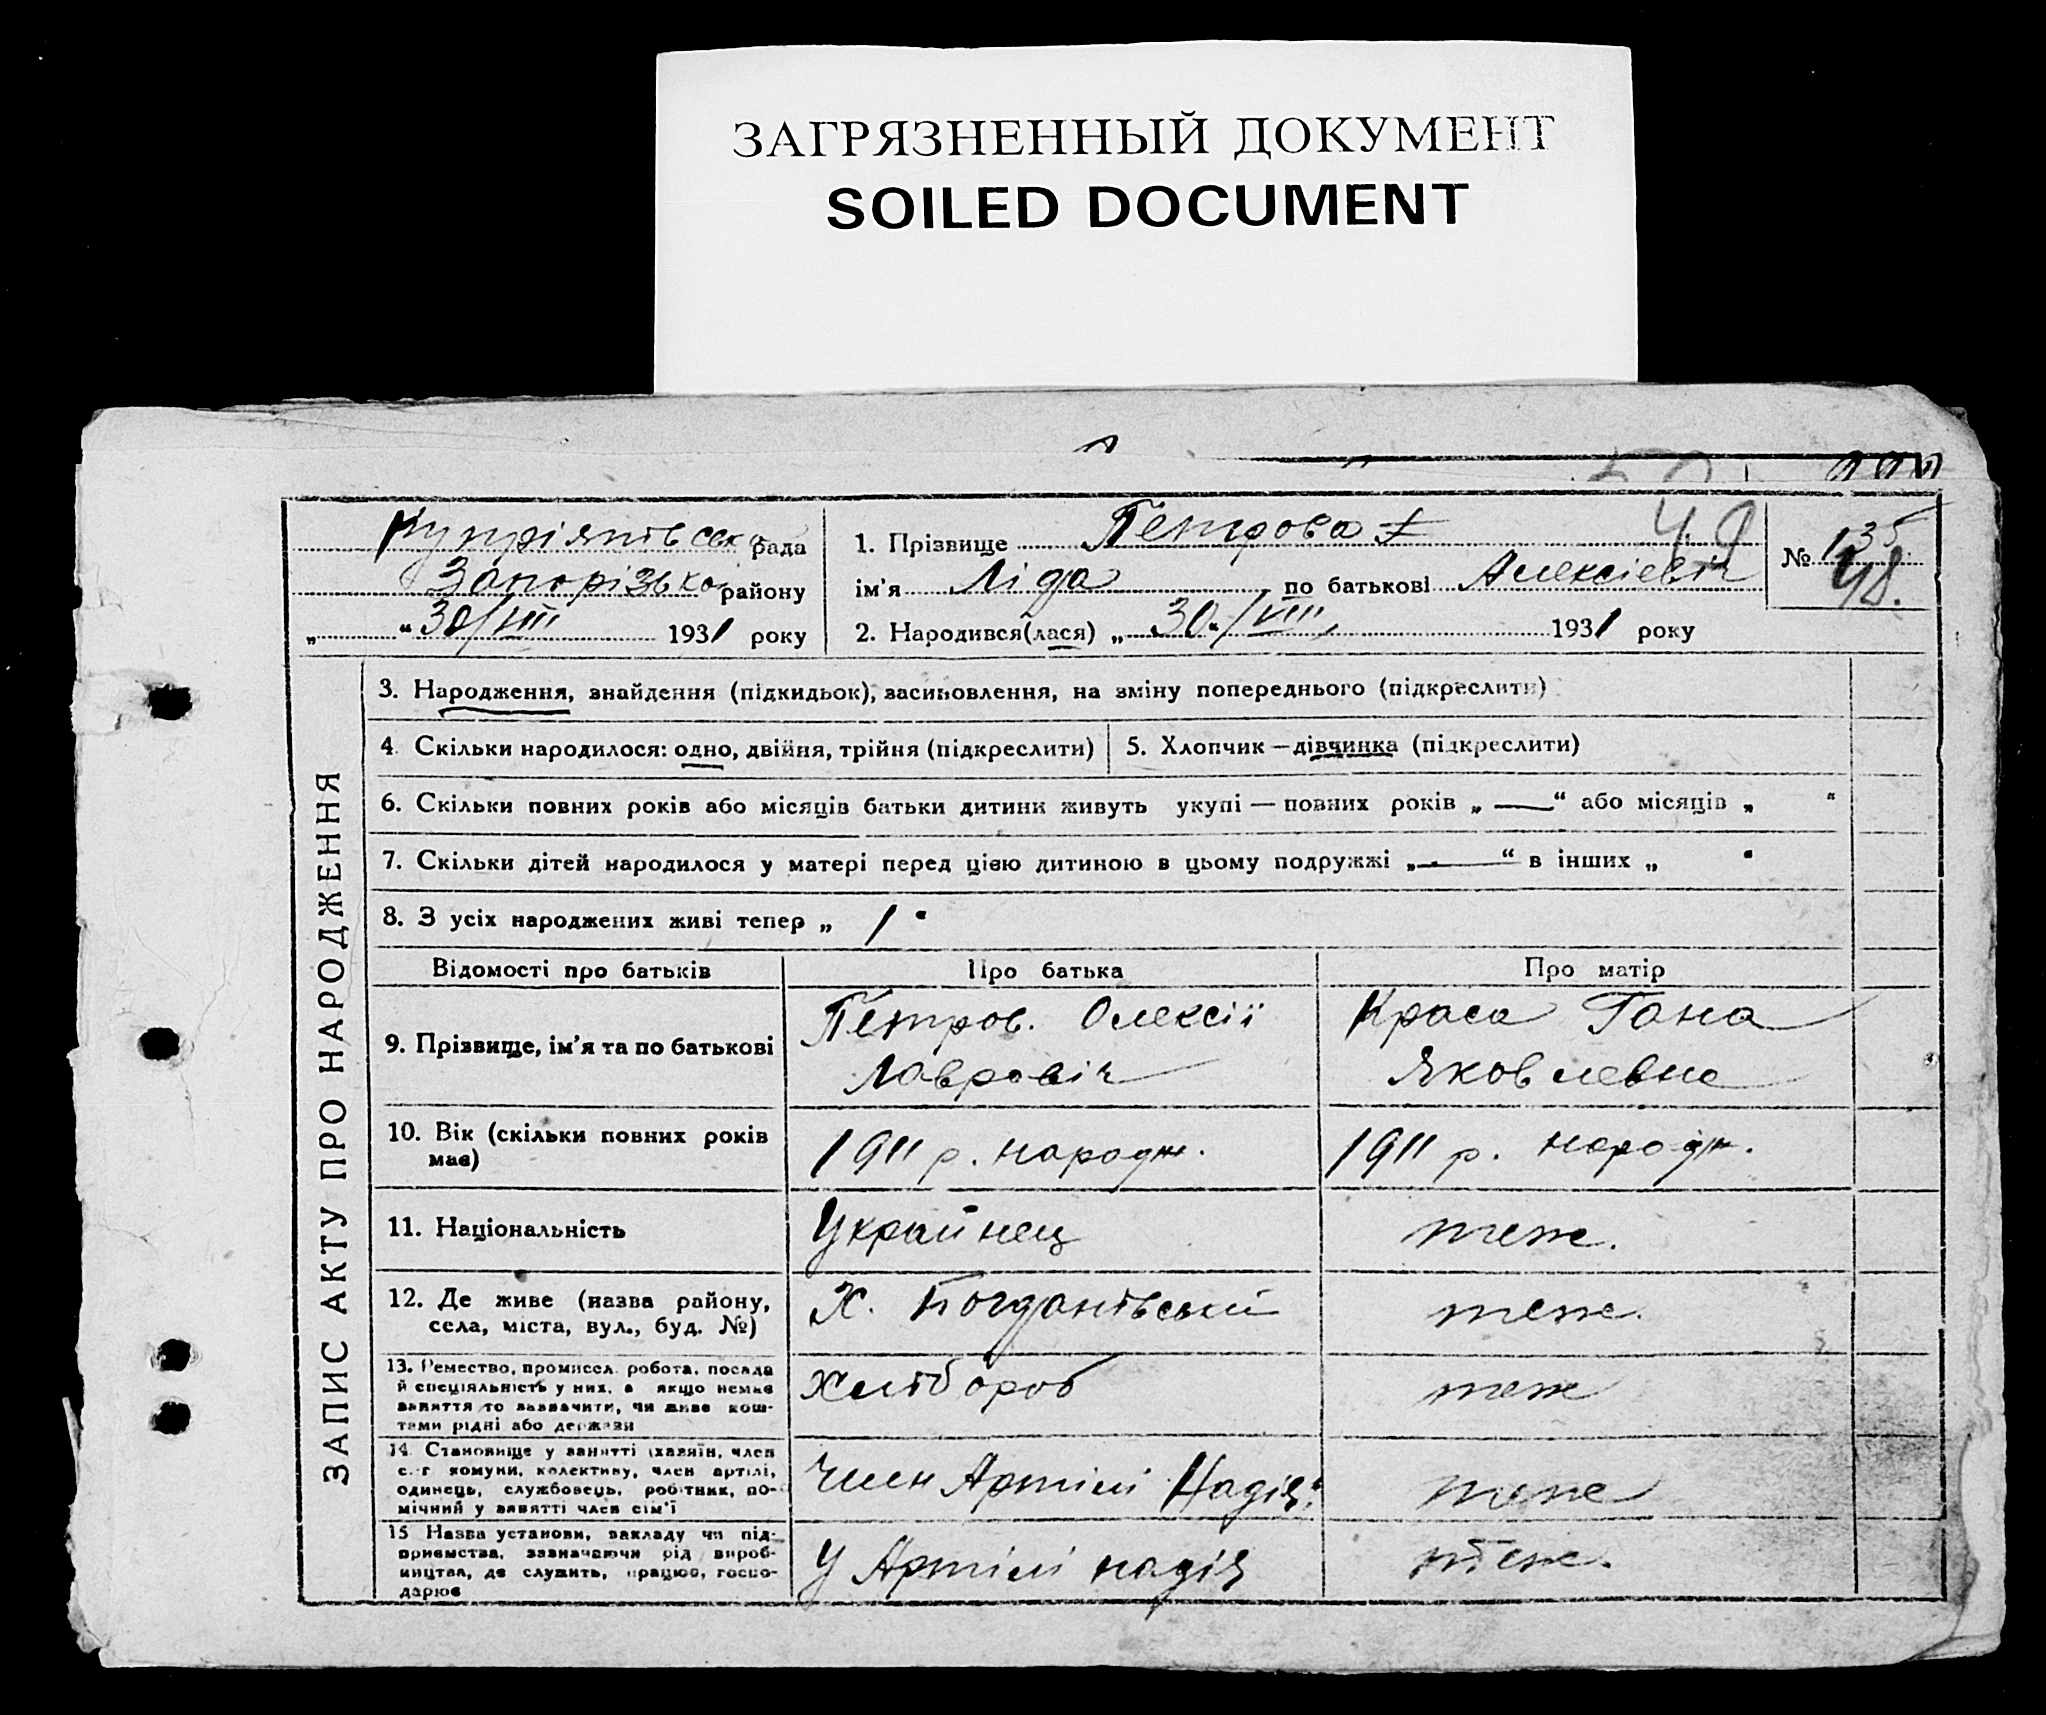 ЗАГРЯЗНЕННЫЙ ДОКУМЕНТ
SOILED DOCUMENT
49
Купріянівська рада
Запорізької району
„ “ 30/VIII 1931 року
1. Прізвище Петрова
ім'я Ліда по батькові Алексіевн
2. Народився(лася) „ 30. “ /VIII, 1931 року
№ 135
48.
ЗАПИС АКТУ ПРО НАРОДЖЕННЯ
3. Народження, знайдення (підкидьок), засиновлення, на зміну попереднього (підкреслити)
4. Скільки народилося: одно, двійня, трійня (підкреслити)
5. Хлопчик — дівчинка (підкреслити)
6. Скільки повних років або місяців батьки дитини живуть укупі — повних років „ — “ або місяців „ “
7. Скільки дітей народилося у матері перед цією дитиною в цьому подружжі „ — “ в інших „ “
8. З усіх народжених живі тепер „ 1 “
Відомості про батьків
Про батька
Про матір
9. Прізвище, ім'я та по батькові
Петров. Олексій
Лавровіч
Краса Гана
Яковлевна
10. Вік (скільки повних років
має)
1911 р. народж.
1911 р. народж.
11. Національність
Украйнец
теж.
12. Де живе (назва району,
села, міста, вул., буд. №)
Х. Богданівський
теж.
13. Ремество, промисел, робота, посада
й спеціяльність у них, а якщо немає
заняття то зазначити, чи живе кош-
тами рідні або держави
Хлібороб
теж
14. Становище у занятті (хазяїн, член
с.-г. комуни, колективу, член артілі,
одинець, службовець, робітник, по-
мічний у занятті член сім'ї
Член Артілі Надія“
теж
15. Назва установи, закладу чи під-
приємства, зазначаючи рід вироб-
ництва, де служить, працює, госпо-
дарює
У Артілі надія
теж.